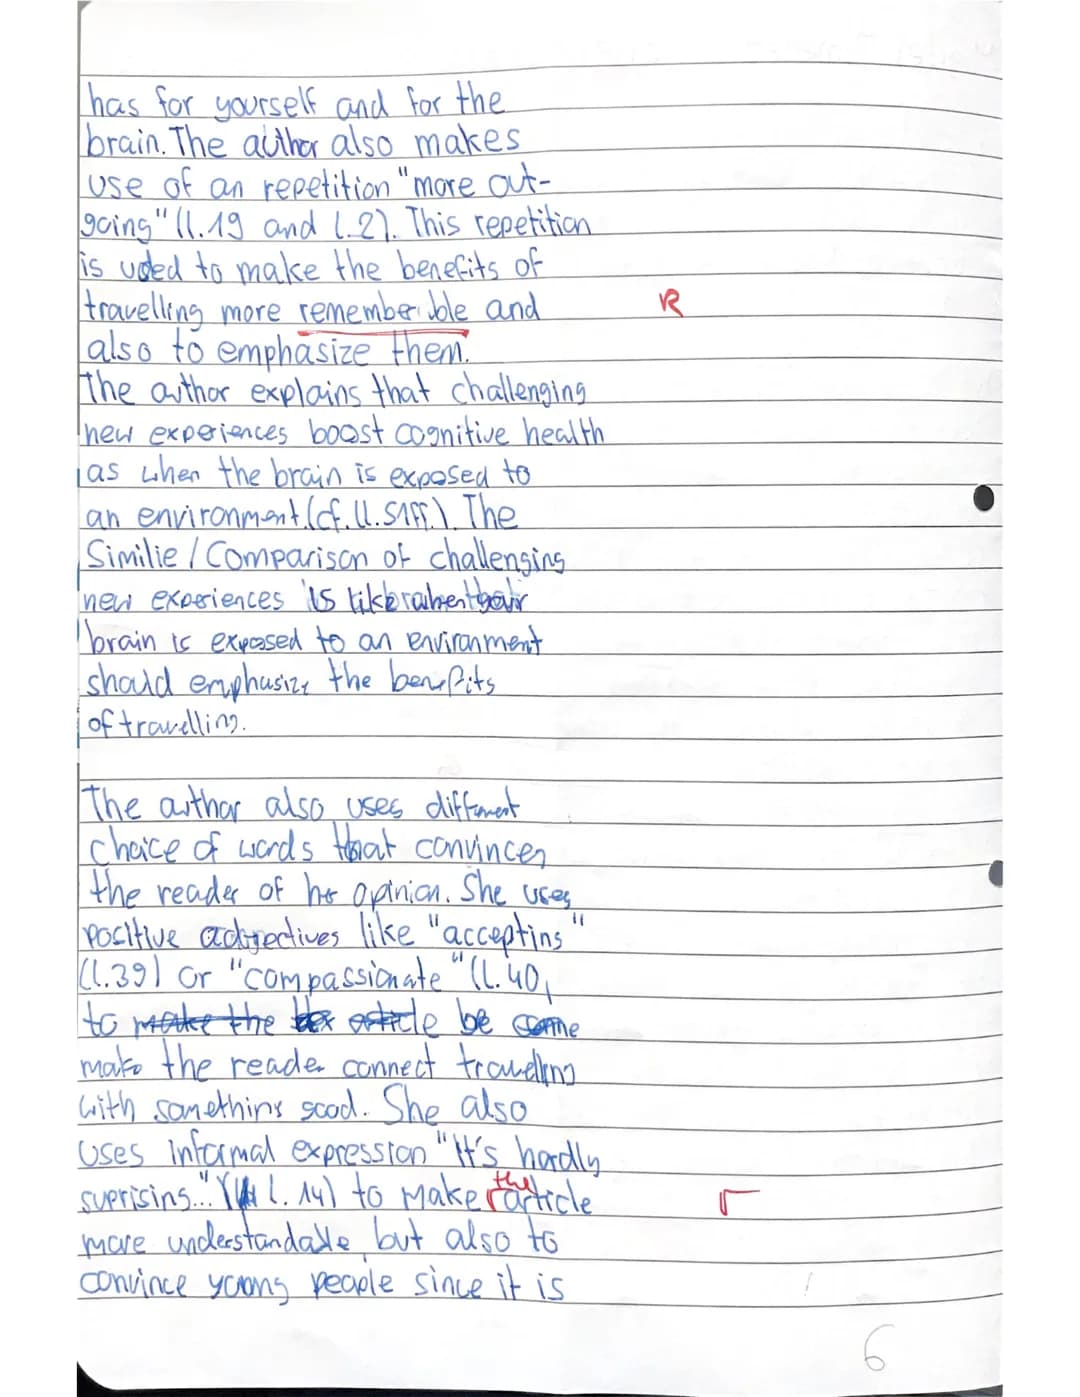 has for yourself and for the
brain. The author also makes
use of an repetition "more out-
going" (l.19 and l.2). This repetition
is used to make the benefits of
travelling more rememberible and
R
also to emphasize them.
The author explains that challenging
new experiences boost cognitive health
as when the brain is exposed to
an environment (cf. ll. 51ff.). The
Similie / Comparison of challenging
new experiences is like when your
brain is exposed to an environment
should emphasize the benefits
of travelling.
The author also uses different
choice of words that convinces
the reader of her opinion. She uses
positive adjectives like "accepting"
(l.39) or "compassionate" (l. 40,
to make the article be come
make the reader connect travelling
with something good. She also
uses informal expression "It's hardly
suprising..." (l. 14) to make the article
Γ
more understandable but also to
convince young people since it is
6